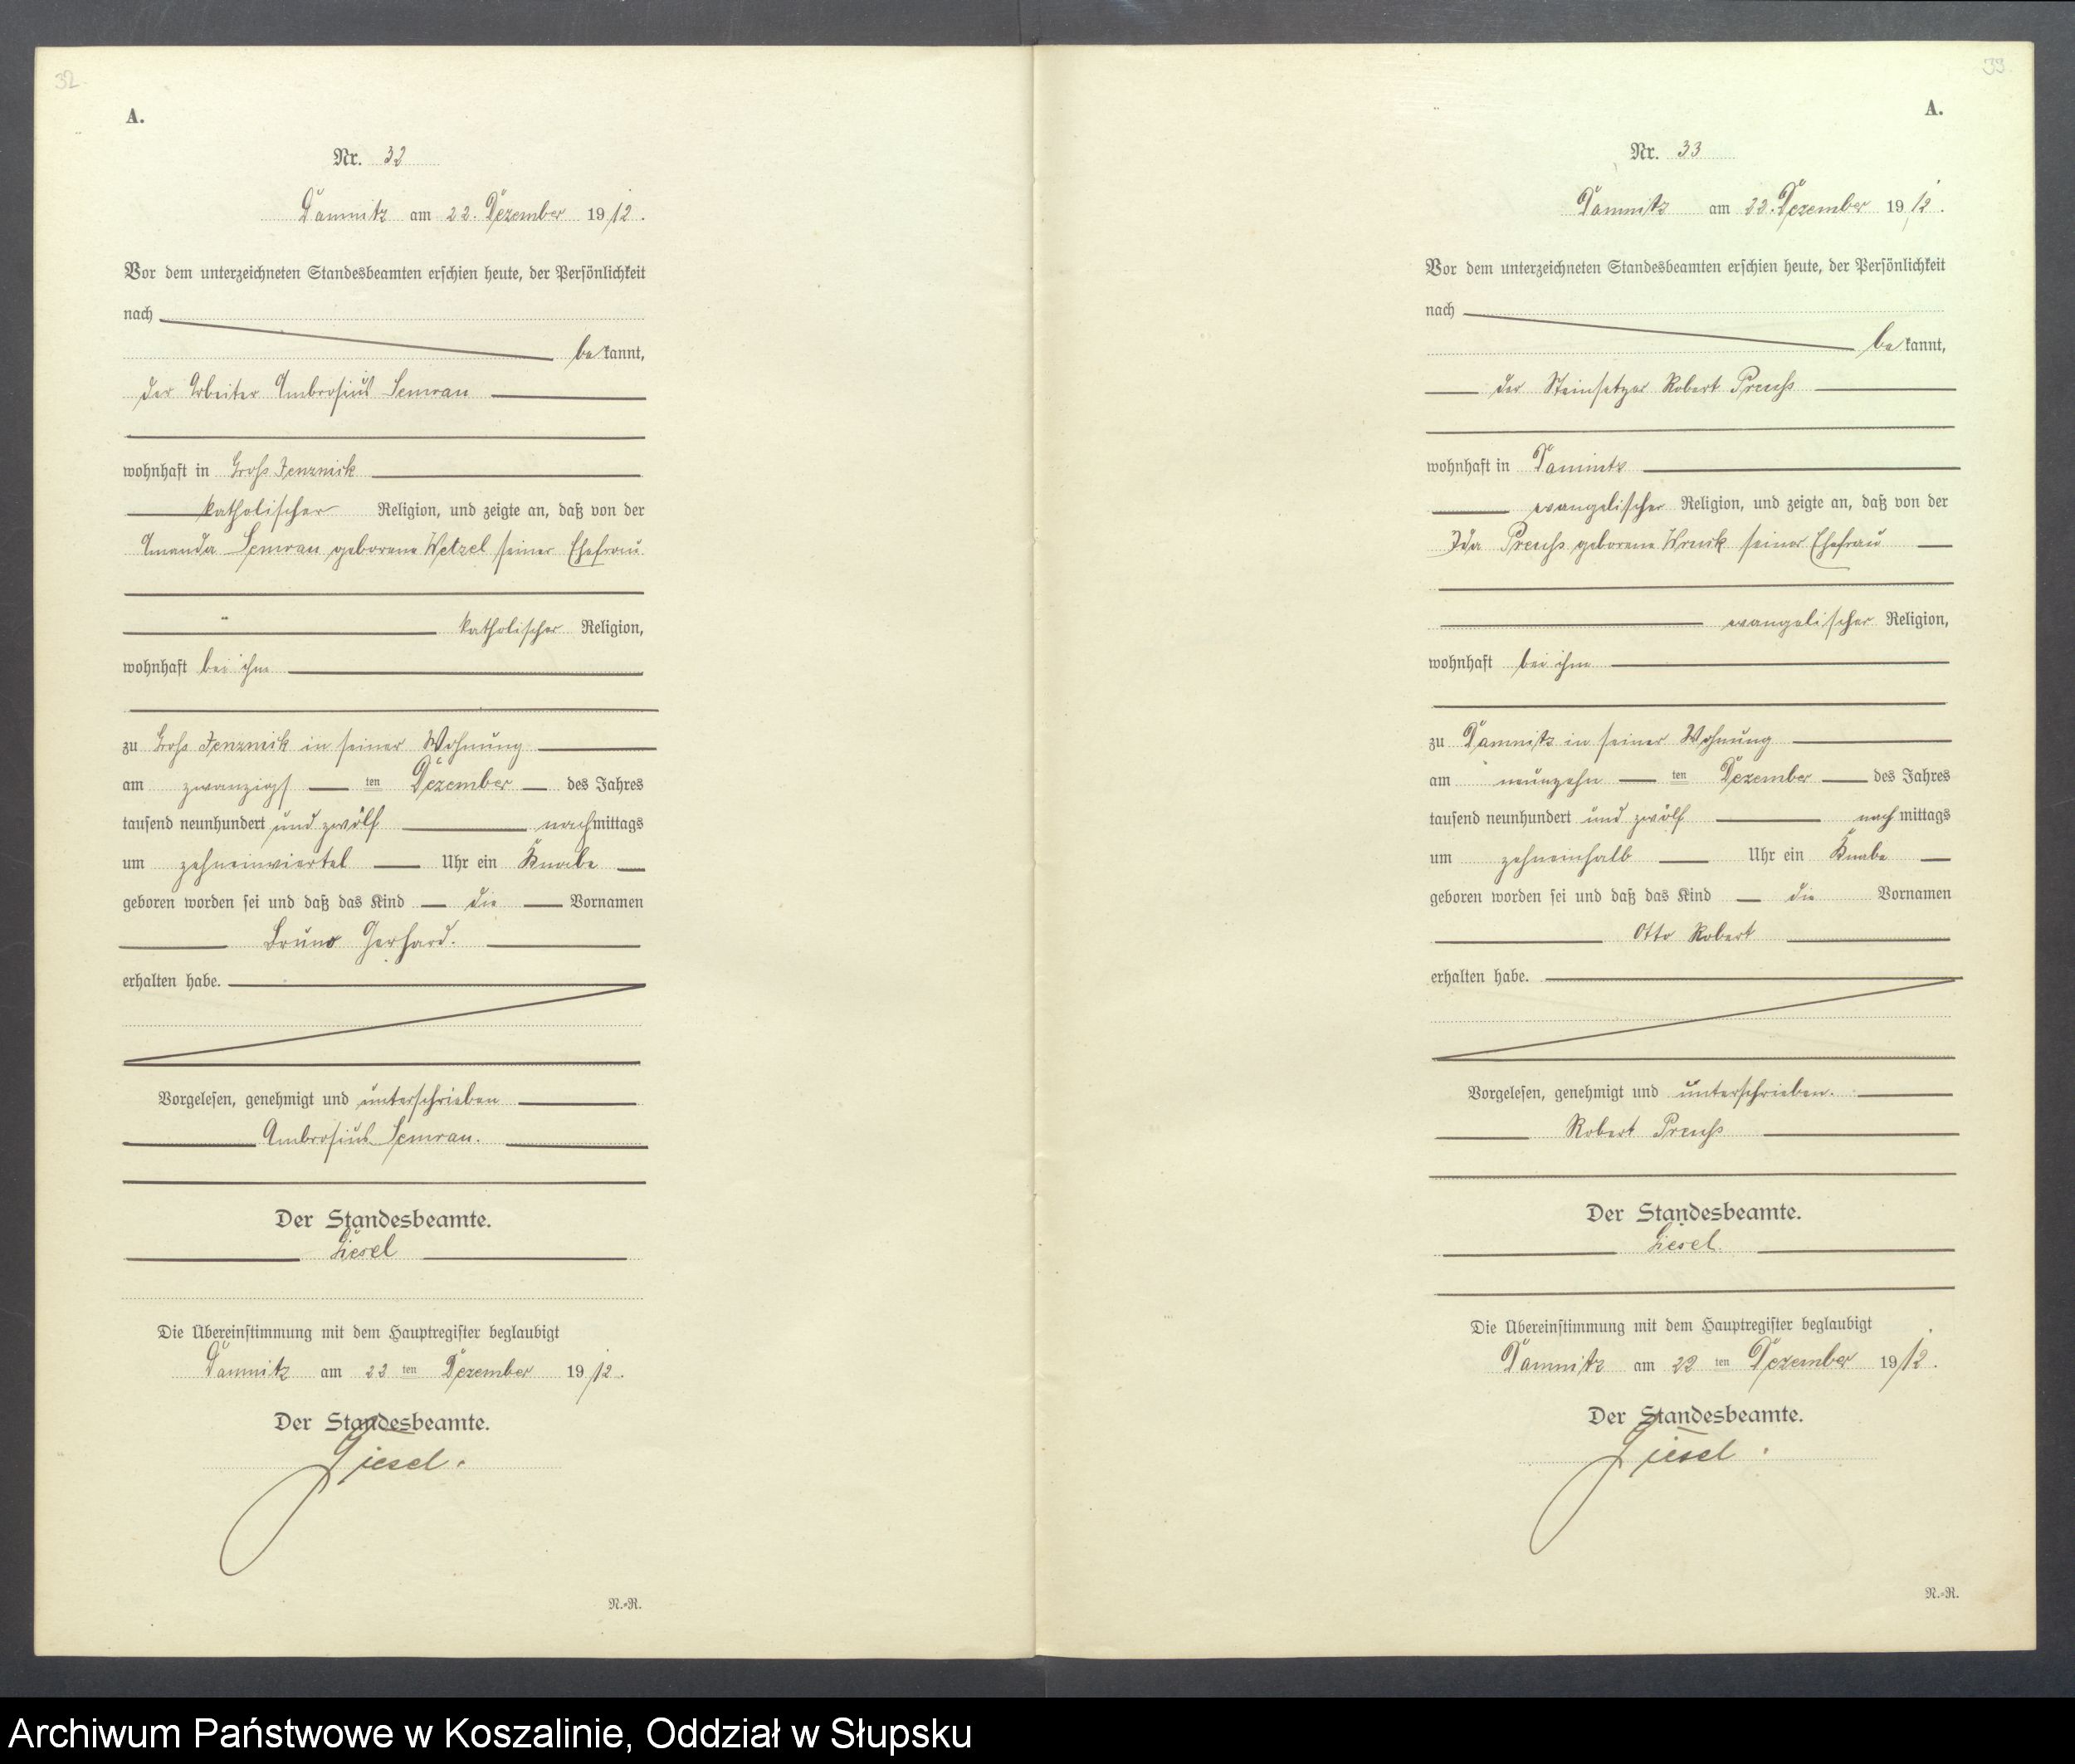 32.
A.
Nr. 32
Damnitz am 22. Dezember 1912.
Vor dem unterzeichneten Standesbeamten erschien heute, der Persönlichkeit
nach
bekannt,
der Arbeiter Ambrosius Semrau
wohnhaft in Groß Jenznick
katholischer Religion, und zeigte an, daß von der
Amanda Semrau geborene Wetzel seiner Ehefrau
katholischer Religion,
wohnhaft bei ihm
zu Groß Jenznick in seiner Wohnung
am zwanzigsten Dezember des Jahres
tausend neunhundert und zwölf nachmittags
um zehneinviertel Uhr ein Knabe
geboren worden sei und daß das Kind die Vornamen
Bruno Gerhard.
erhalten habe.
Vorgelesen, genehmigt und unterschrieben
Ambrosius Semrau.
Der Standesbeamte.
Giesel
Die Übereinstimmung mit dem Hauptregister beglaubigt
Damnitz am 22 ten Dezember 1912.
Der Standesbeamte.
Giesel.
N.=R.
33.
A.
Nr. 33
Damnitz am 22. Dezember 1912.
Vor dem unterzeichneten Standesbeamten erschien heute, der Persönlichkeit
nach
bekannt,
der Steinsetzer Robert Preuß
wohnhaft in Damnitz
evangelischer Religion, und zeigte an, daß von der
Ida Preuß geborene seiner Ehefrau
evangelischer Religion,
wohnhaft bei ihm
zu Damnitz in seiner Wohnung
am neunzehn ten Dezember des Jahres
tausend neunhundert und zwölf nachmittags
um zehneinhalb Uhr ein Knabe
geboren worden sei und daß das Kind die Vornamen
Otto Robert
erhalten habe.
Vorgelesen, genehmigt und unterschrieben.
Robert Preuß
Der Standesbeamte.
Giesel.
Die Übereinstimmung mit dem Hauptregister beglaubigt
Damnitz am 22 ten Dezember 1912.
Der Standesbeamte.
Giesel.
N.=R.
Archiwum Państwowe w Koszalinie, Oddział w Słupsku